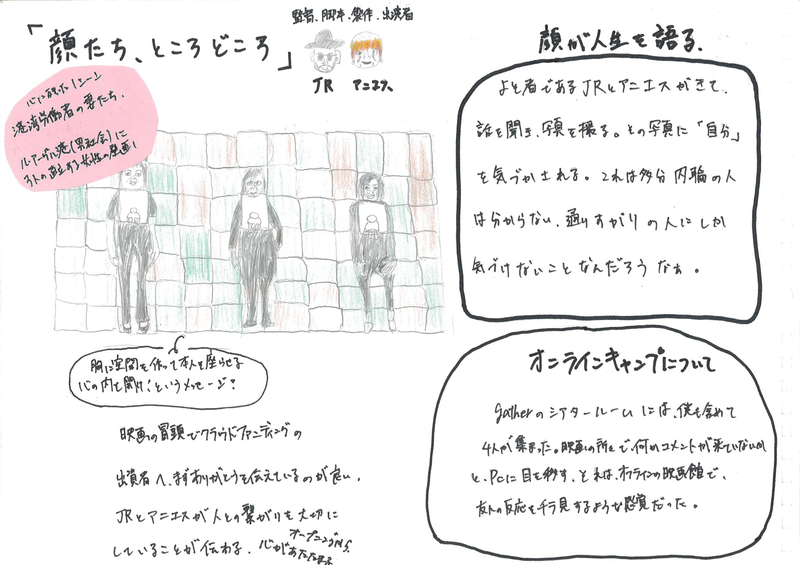 「顔たち、ところどころ」
監督、脚本、製作、出演者
JR アニエス
心に残った1シーン
港湾労働者の妻たち.
ル・アーヴル港(男社会)に
3人の直立する女性の壁画!
胸に空間を作って本人を座らせる
心の内を開け!というメッセージ?
映画の冒頭でクラウドファンディングの
出資者へ、まずありがとうを伝えているのが良い.
JRとアニエスが人との繋がりを大切に
していることが伝わる. オープニングから
心があたたまる
顔が人生を語る.
よそ者であるJRとアニエスがきて、
話を聞き、写真を撮る。その写真に「自分」
を気づかされる。これは多分内輪の人
は分からない、通りすがりの人にしか
気づけないことなんだろうなぁ。
オンラインキャンプについて
gatherのシアタールームには、僕を含めて
4人が集まった。映画の所々で、何かコメントが来ていないか
と、PCに目を移す、それは、オンラインの映画館で、
友人の反応をチラ見するような感覚だった。